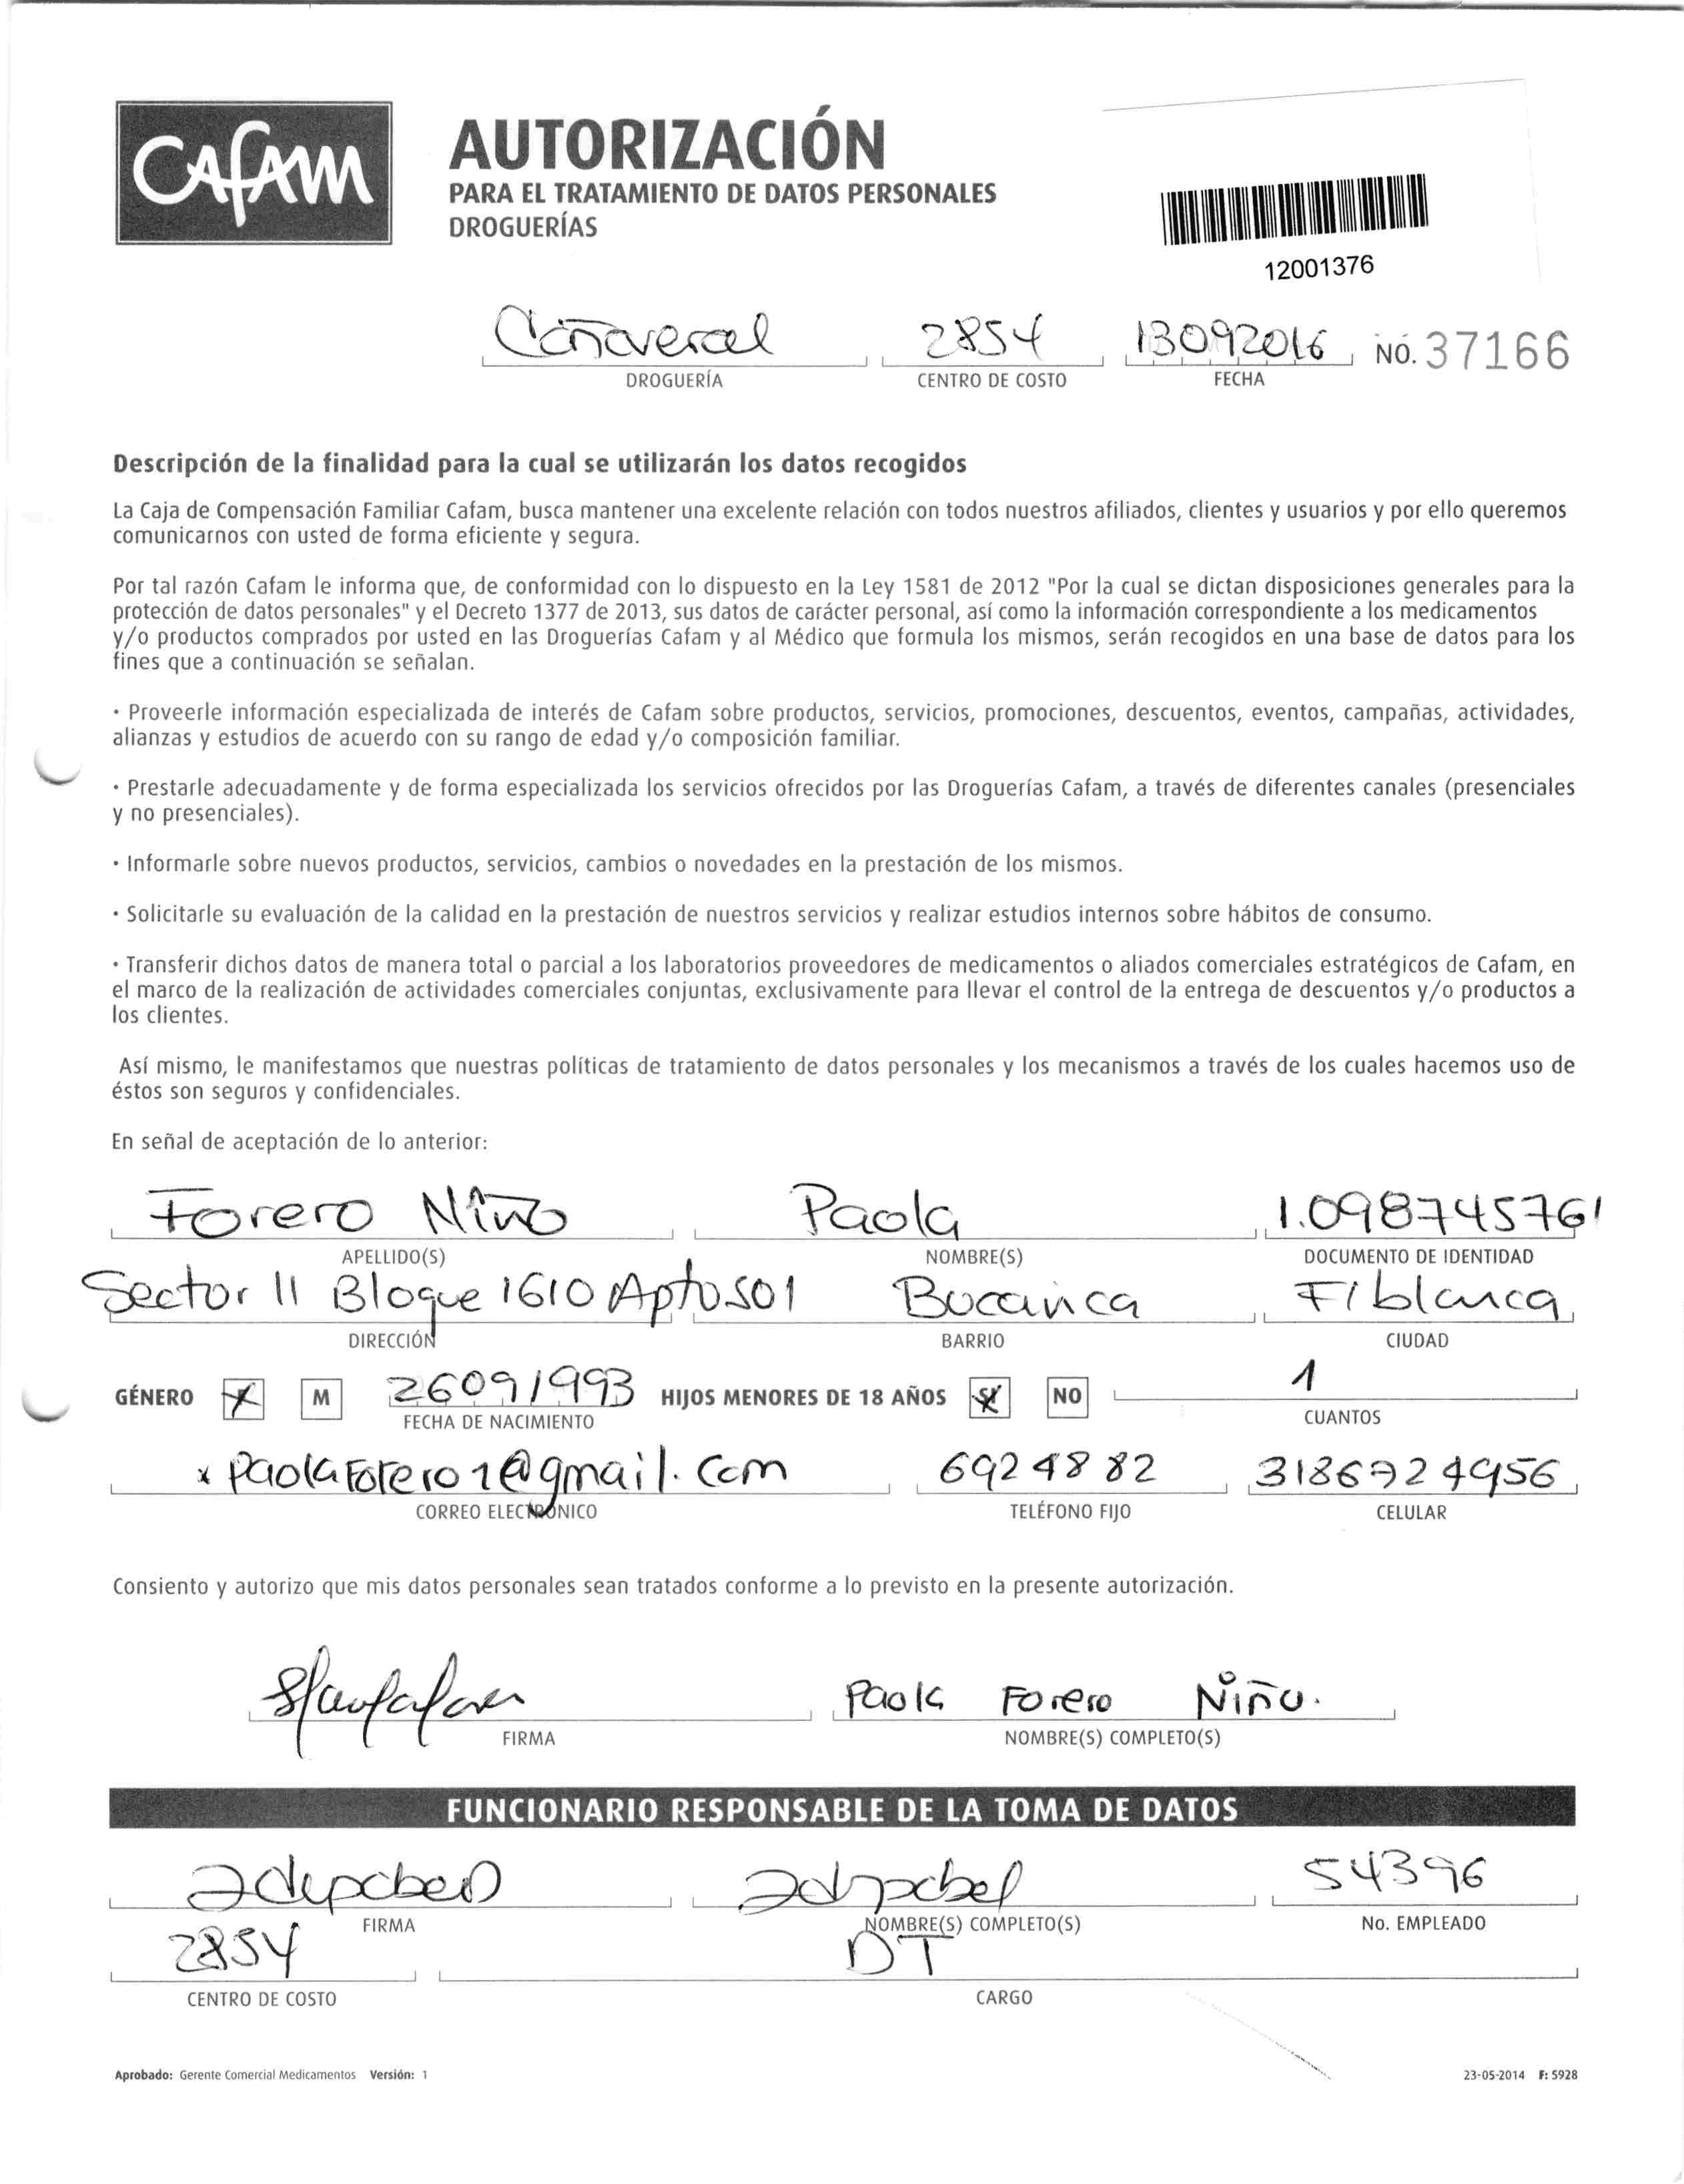 CAFAM
AUTORIZACIÓN
PARA EL TRATAMIENTO DE DATOS PERSONALES
DROGUERÍAS
12001376
Cañaveral 2854 13092016 NO. 37166
DROGUERÍA CENTRO DE COSTO FECHA
Descripción de la finalidad para la cual se utilizarán los datos recogidos
La Caja de Compensación Familiar Cafam, busca mantener una excelente relación con todos nuestros afiliados, clientes y usuarios y por ello queremos
comunicarnos con usted de forma eficiente y segura.
Por tal razón Cafam le informa que, de conformidad con lo dispuesto en la Ley 1581 de 2012 "Por la cual se dictan disposiciones generales para la
protección de datos personales" y el Decreto 1377 de 2013, sus datos de carácter personal, así como la información correspondiente a los medicamentos
y/o productos comprados por usted en las Droguerías Cafam y al Médico que formula los mismos, serán recogidos en una base de datos para los
fines que a continuación se señalan.
· Proveerle información especializada de interés de Cafam sobre productos, servicios, promociones, descuentos, eventos, campañas, actividades,
alianzas y estudios de acuerdo con su rango de edad y/o composición familiar.
· Prestarle adecuadamente y de forma especializada los servicios ofrecidos por las Droguerías Cafam, a través de diferentes canales (presenciales
y no presenciales).
· Informarle sobre nuevos productos, servicios, cambios o novedades en la prestación de los mismos.
· Solicitarle su evaluación de la calidad en la prestación de nuestros servicios y realizar estudios internos sobre hábitos de consumo.
· Transferir dichos datos de manera total o parcial a los laboratorios proveedores de medicamentos o aliados comerciales estratégicos de Cafam, en
el marco de la realización de actividades comerciales conjuntas, exclusivamente para llevar el control de la entrega de descuentos y/o productos a
los clientes.
Así mismo, le manifestamos que nuestras políticas de tratamiento de datos personales y los mecanismos a través de los cuales hacemos uso de
éstos son seguros y confidenciales.
En señal de aceptación de lo anterior:
Forero Niño Paola 1.098745761
APELLIDO(S) NOMBRE(S) DOCUMENTO DE IDENTIDAD
Sector 11 Bloque 1610 Apto 501 Bucarica F/blanca
DIRECCIÓN BARRIO CIUDAD
GÉNERO M 26091993 HIJOS MENORES DE 18 AÑOS SI NO 1
FECHA DE NACIMIENTO CUANTOS
x PaolaForero1@gmail.com 6924882 3186924956
CORREO ELECTRÓNICO TELÉFONO FIJO CELULAR
Consiento y autorizo que mis datos personales sean tratados conforme a lo previsto en la presente autorización.
Paola Forero Niño.
FIRMA NOMBRE(S) COMPLETO(S)
FUNCIONARIO RESPONSABLE DE LA TOMA DE DATOS
54396
FIRMA NOMBRE(S) COMPLETO(S) No. EMPLEADO
2854 DT
CENTRO DE COSTO CARGO
Aprobado: Gerente Comercial Medicamentos Versión: 1 23-05-2014 F: 5928